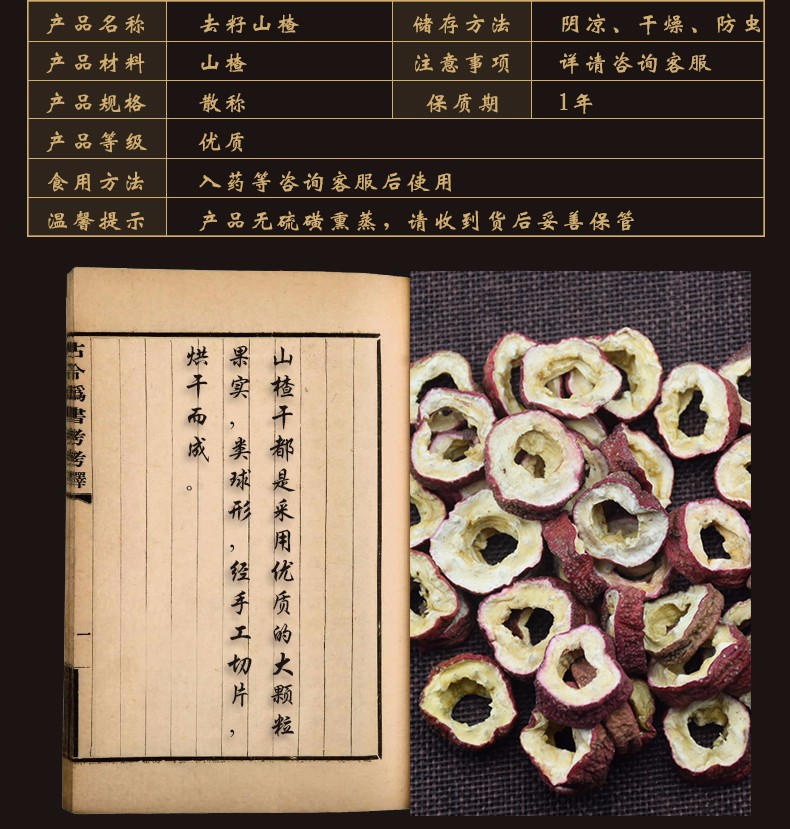 产品名称 去籽山楂 储存方法 阴凉、干燥、防虫
产品材料 山楂 注意事项 详请咨询客服
产品规格 散称 保质期 1年
产品等级 优质
食用方法 入药等咨询客服后使用
温馨提示 产品无硫磺熏蒸，请收到货后妥善保管
山楂干都是采用优质的大颗粒
果实，类球形，经手工切片，
烘干而成。
古今偽書考考釋
一